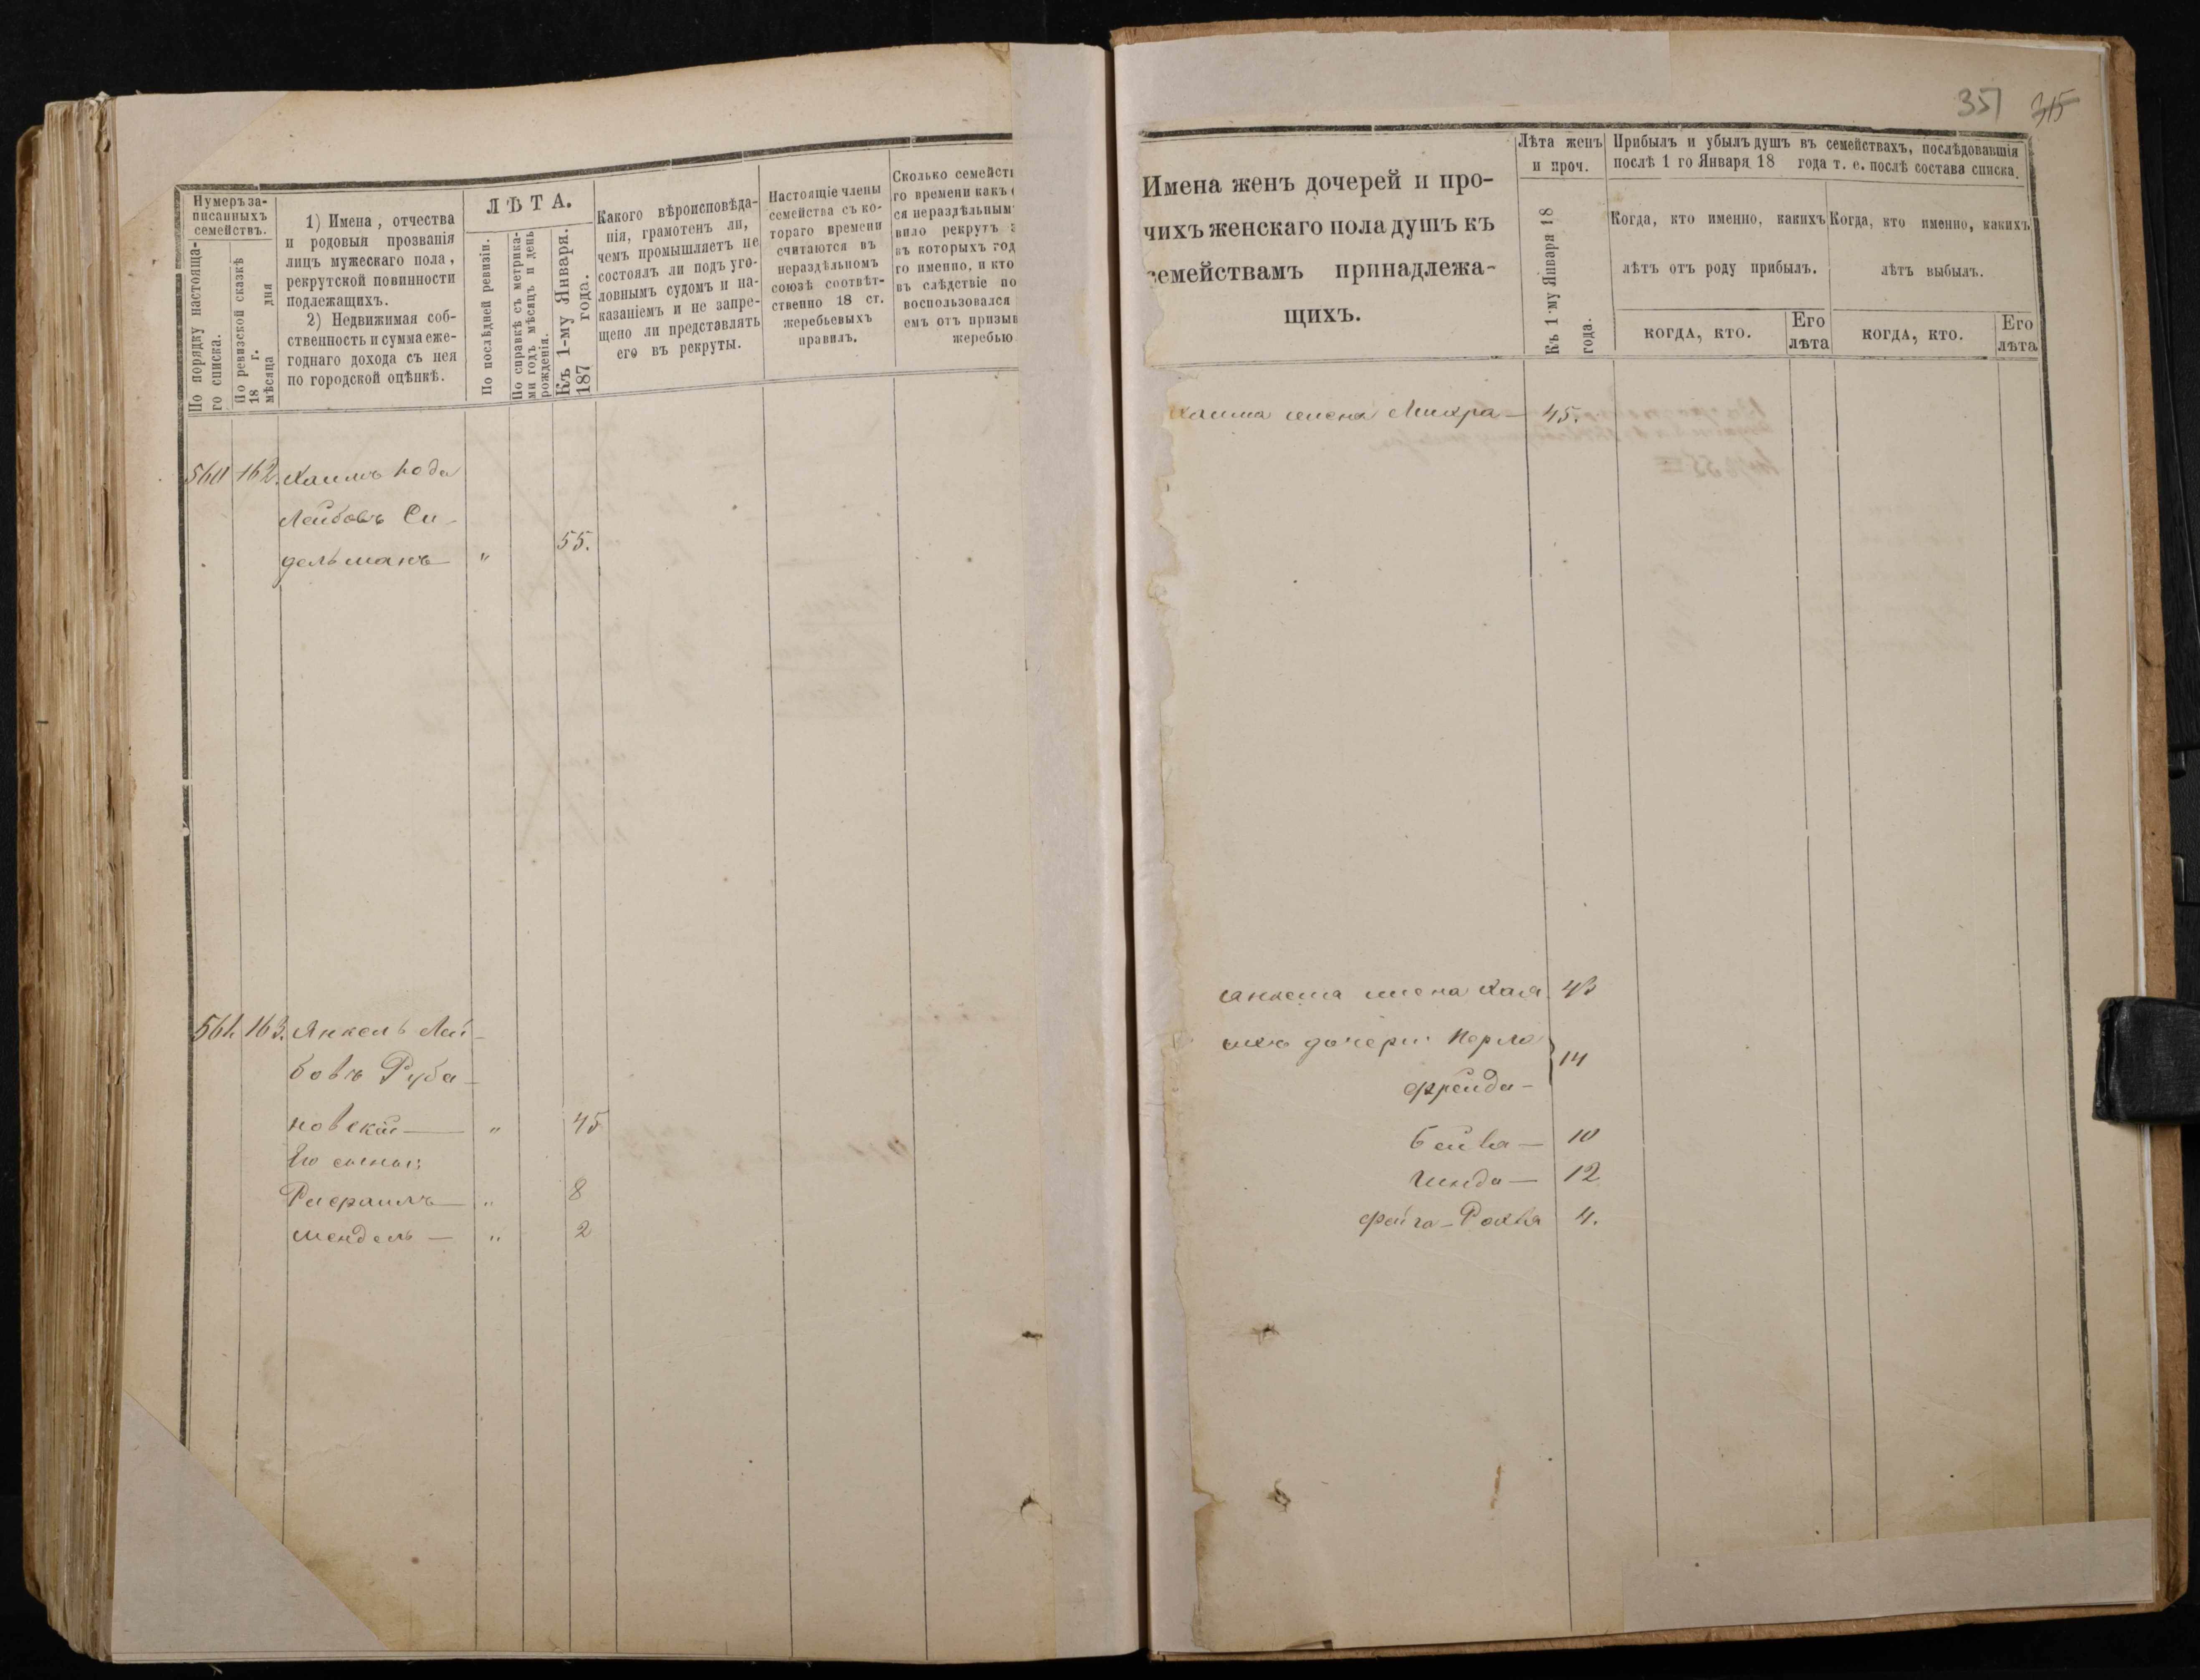 Нумеръ за-
писанныхъ
семействъ.
По порядку настояща-
го списка.
По ревизской сказкѣ
18 г.
мѣсяца дня
1) Имена, отчества
и родовыя прозванія
лицъ мужескаго пола,
рекрутской повинности
подлежащихъ.
2) Недвижимая соб-
ственность и сумма еже-
годнаго дохода съ нея
по городской оцѣнкѣ.
ЛѢТА.
По послѣдней ревизіи.
По справкѣ съ метрика-
ми годъ мѣсяцъ и день
рожденія.
Къ 1-му Января.
187 года.
Какого вѣроисповѣда-
нія, грамотенъ ли,
чемъ промышляетъ не
состоялъ ли подъ уго-
ловнымъ судомъ и на-
казаніемъ и не запре-
щено ли представлять
его въ рекруты.
Настоящіе члены
семейства съ ко-
тораго времени
считаются въ
нераздѣльномъ
союзѣ соотвѣт-
ственно 18 ст.
жеребьевыхъ
правилъ.
Сколько семейст
го времени какъ
ся нераздѣльным
вило рекрутъ
въ которыхъ год
го именно, и кто
въ слѣдствіе по
воспользовался
емъ отъ призыв
жеребью
162. Хаимъ
Лейбовъ Си-
дельманъ — " 55.
163. Янкель Лей-
бовъ Руба-
новскій — " 45
Его сыновья:
— " 8
Мендель — " 2
351 315
Имена женъ дочерей и про-
чихъ женскаго пола душъ къ
семействамъ принадлежа-
щихъ.
Лѣта женъ
и проч.
Къ 1-му Января 18
года.
Прибылъ и убылъ душъ въ семействахъ, послѣдовавшія
послѣ 1 го Января 18 года т. е. послѣ состава списка.
Когда, кто именно, какихъ
лѣтъ отъ роду прибылъ.
когда, кто.
Его
лѣта
Когда, кто именно, какихъ
лѣтъ выбылъ.
когда, кто.
Его
лѣта
Хаима жена — 45.
Янкеля жена Хая 43
ихъ дочери: Перла
Фрейда — 14
Бейла — 10
Гинда — 12
Фейга - Рохля 4.